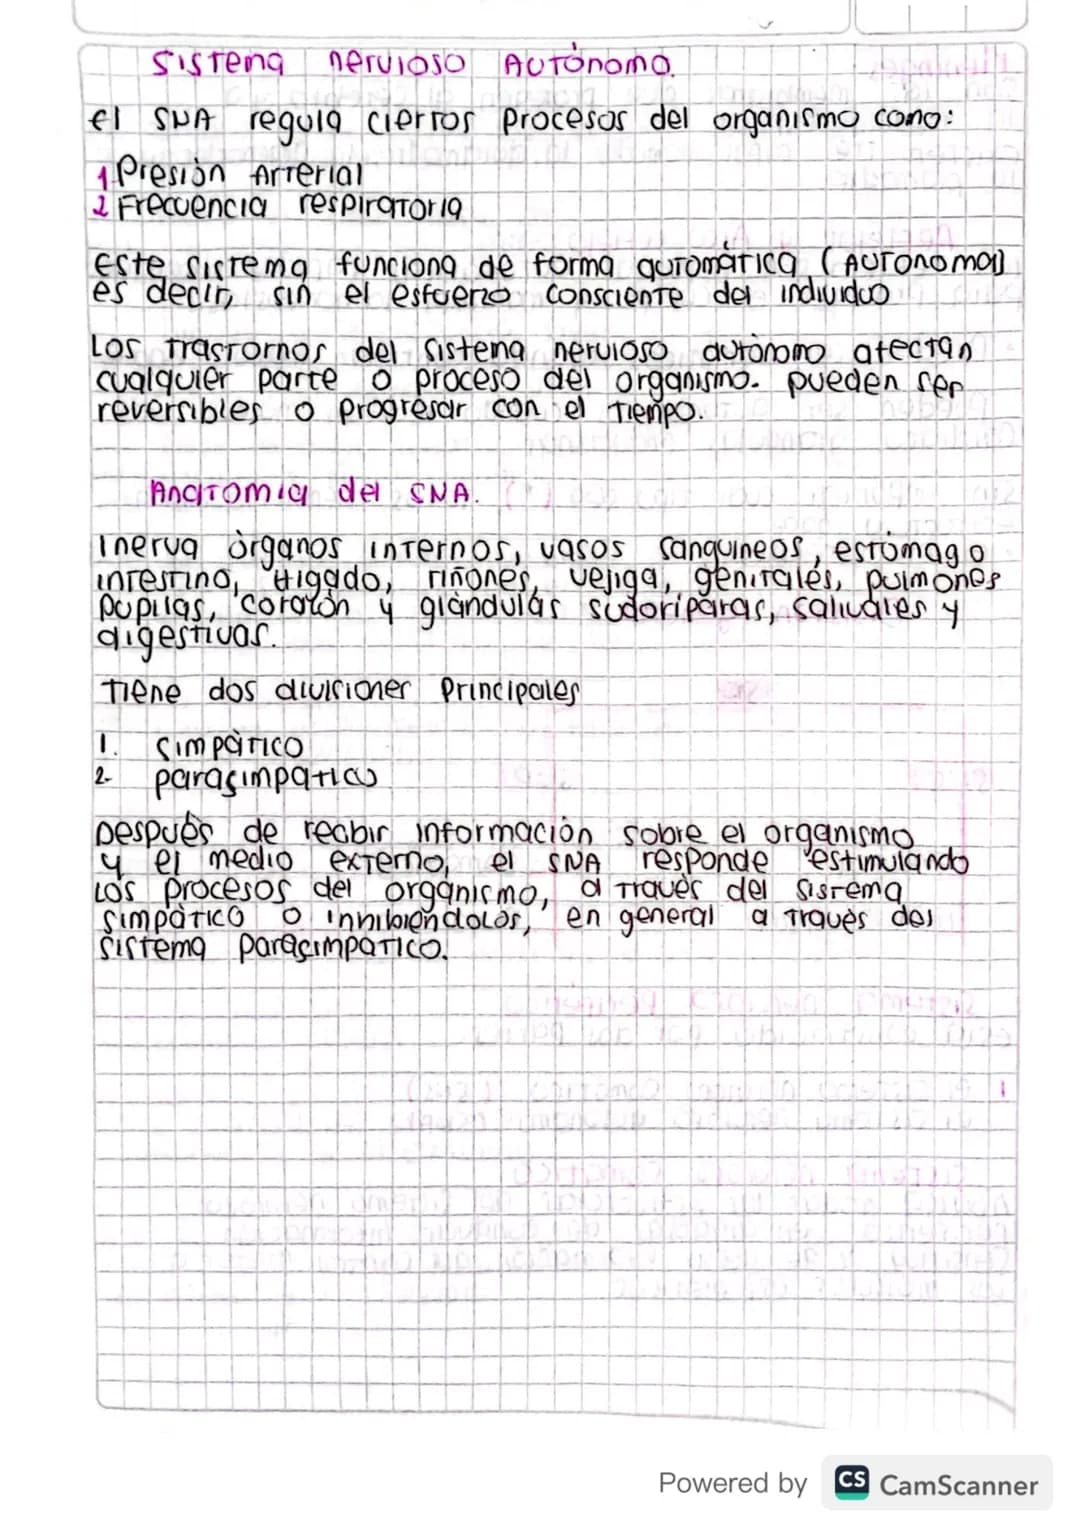 Sistema nervioso Autónomo.
el SNA regula ciertos procesos del organismo como:
1 Presión Arterial
2 Frecuencia respiratoria
Este sistema funciona de forma automática (Autonoma)
es decir, sin el esfuerzo consciente del individuo
Los trastornos del sistema nervioso autónomo afectan
cualquier parte o proceso del organismo. pueden ser
reversibles o progresar con el tiempo.
Anatomia del SNA.
Inerva órganos internos, vasos sanguineos, estómago
intestino, Higado, riñones, vejiga, genitales, pulmones
pupilas, corazón y glándulas sudoríparas, salivales y
digestivas.
Tiene dos divisiones Principales
1. Simpático
2- parasimpatico
Después de recibir información sobre el organismo
y el medio externo, el SNA responde estimulando
los procesos del organismo, a través del sistema
simpático o inhibiéndolos, en general a través del
sistema parasimpático.
Powered by CS CamScanner